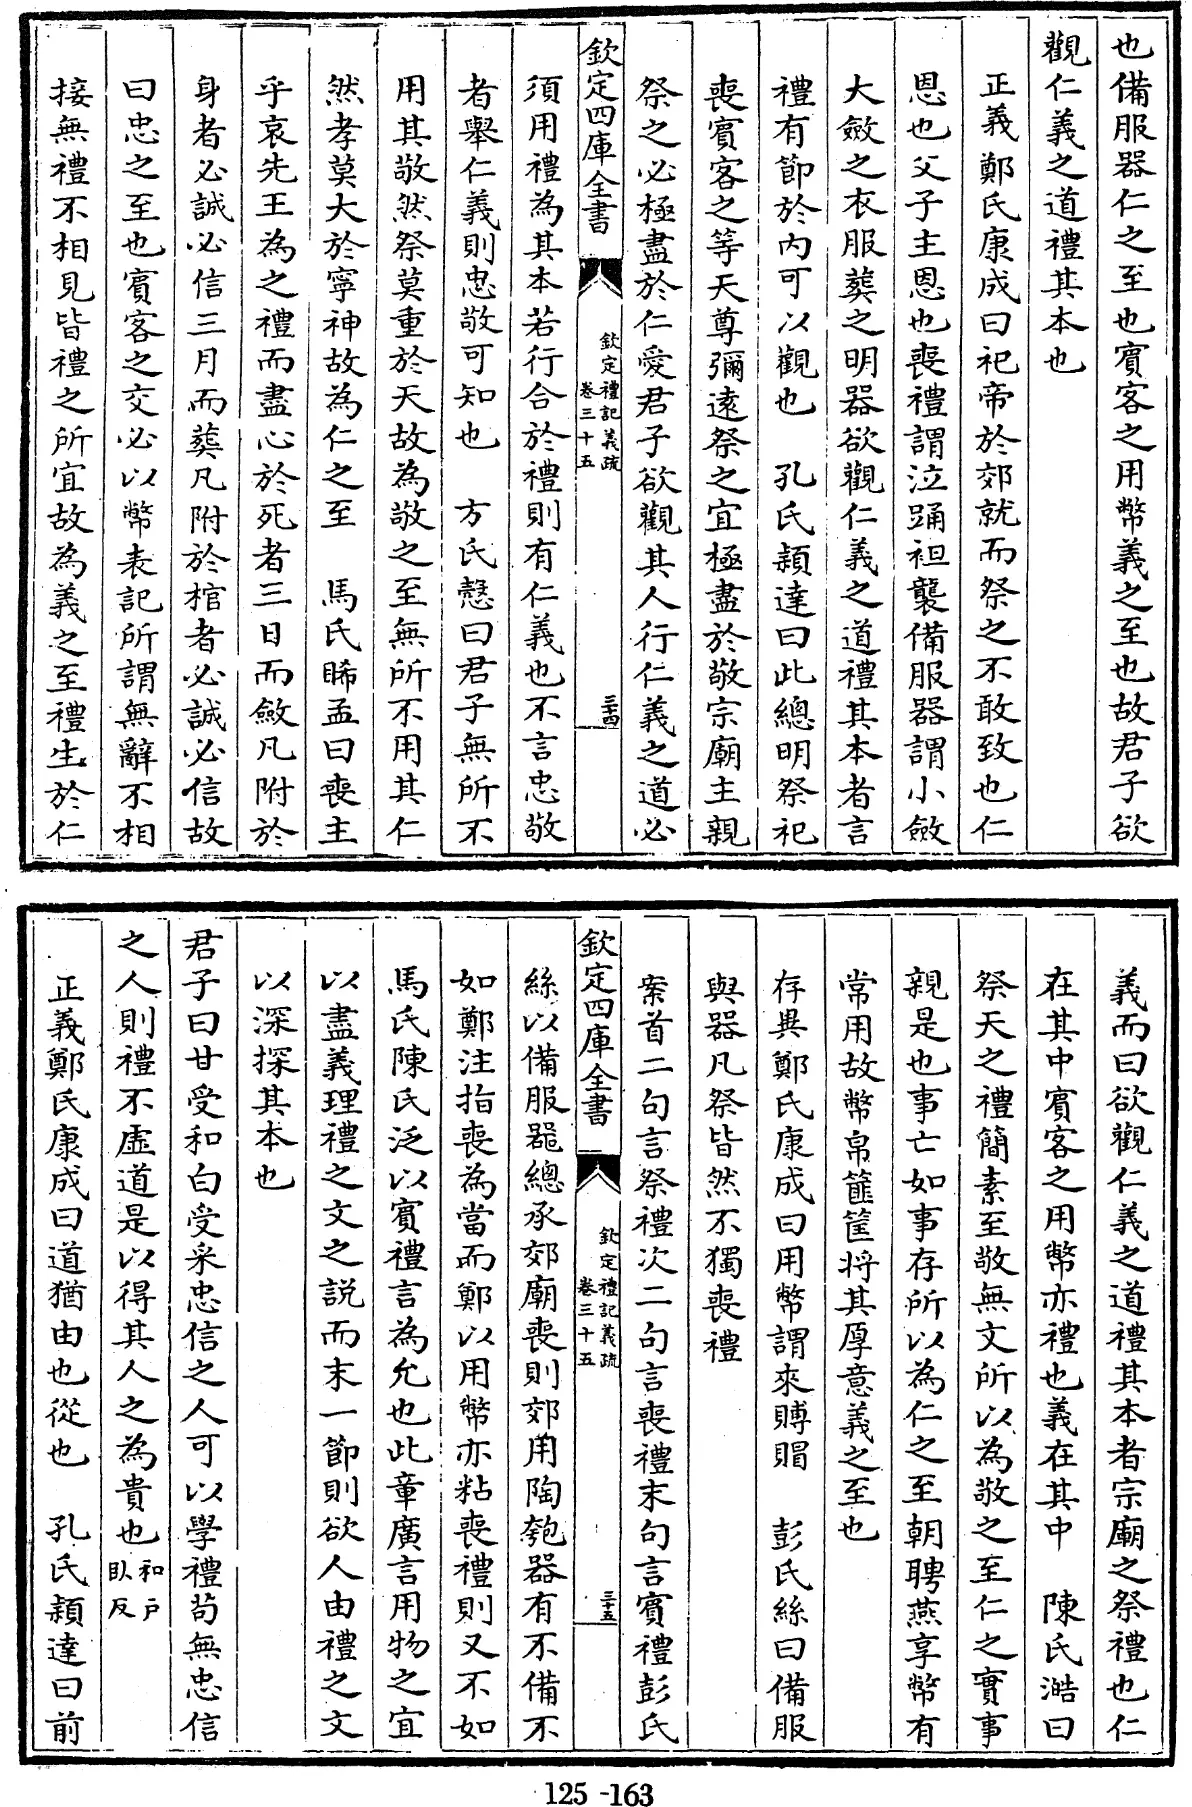 也備服器仁之至也賓客之用幣義之至也故君子欲
觀仁義之道禮其本也
正義鄭氏康成曰祀帝於郊就而祭之不敢致也仁
恩也父子主恩也喪禮謂泣踊袒襲備服器謂小斂
大斂之衣服葬之明器欲觀仁義之道禮其本者言
禮有節於内可以觀也　孔氏穎達曰此總明祭祀
喪賓客之等天尊彌遠祭之宜極盡於敬宗廟主親
祭之必極盡於仁愛君子欲觀其人行仁義之道必
欽定四庫全書
欽定禮記義疏
卷三十五
三十四
須用禮為其本若行合於禮則有仁義也不言忠敬
者舉仁義則忠敬可知也　方氏慤曰君子無所不
用其敬然祭莫重於天故為敬之至無所不用其仁
然孝莫大於寧神故為仁之至　馬氏睎孟曰喪主
乎哀先王為之禮而盡心於死者三日而斂凡附於
身者必誠必信三月而葬凡附於棺者必誠必信故
曰忠之至也賓客之交必以幣表記所謂無辭不相
接無禮不相見皆禮之所宜故為義之至禮生於仁
義而曰欲觀仁義之道禮其本者宗廟之祭禮也仁
在其中賓客之用幣亦禮也義在其中　陳氏澔曰
祭天之禮簡素至敬無文所以為敬之至仁之實事
親是也事亡如事存所以為仁之至朝聘燕享幣有
常用故幣帛篚筐将其厚意義之至也
存異鄭氏康成曰用幣謂來賻賵　彭氏絲曰備服
與器凡祭皆然不獨喪禮
案首二句言祭禮次二句言喪禮末句言賓禮彭氏
欽定四庫全書
欽定禮記義疏
卷三十五
三十五
絲以備服器總承郊廟喪則郊用陶匏器有不備不
如鄭注指喪為當而鄭以用幣亦粘喪禮則又不如
馬氏陳氏泛以賓禮言為允也此章廣言用物之宜
以盡義理禮之文之説而末一節則欲人由禮之文
以深探其本也
君子曰甘受和白受采忠信之人可以學禮苟無忠信
之人則禮不虚道是以得其人之為貴也和户臥反
正義鄭氏康成曰道猶由也從也　孔氏穎達曰前
125-163